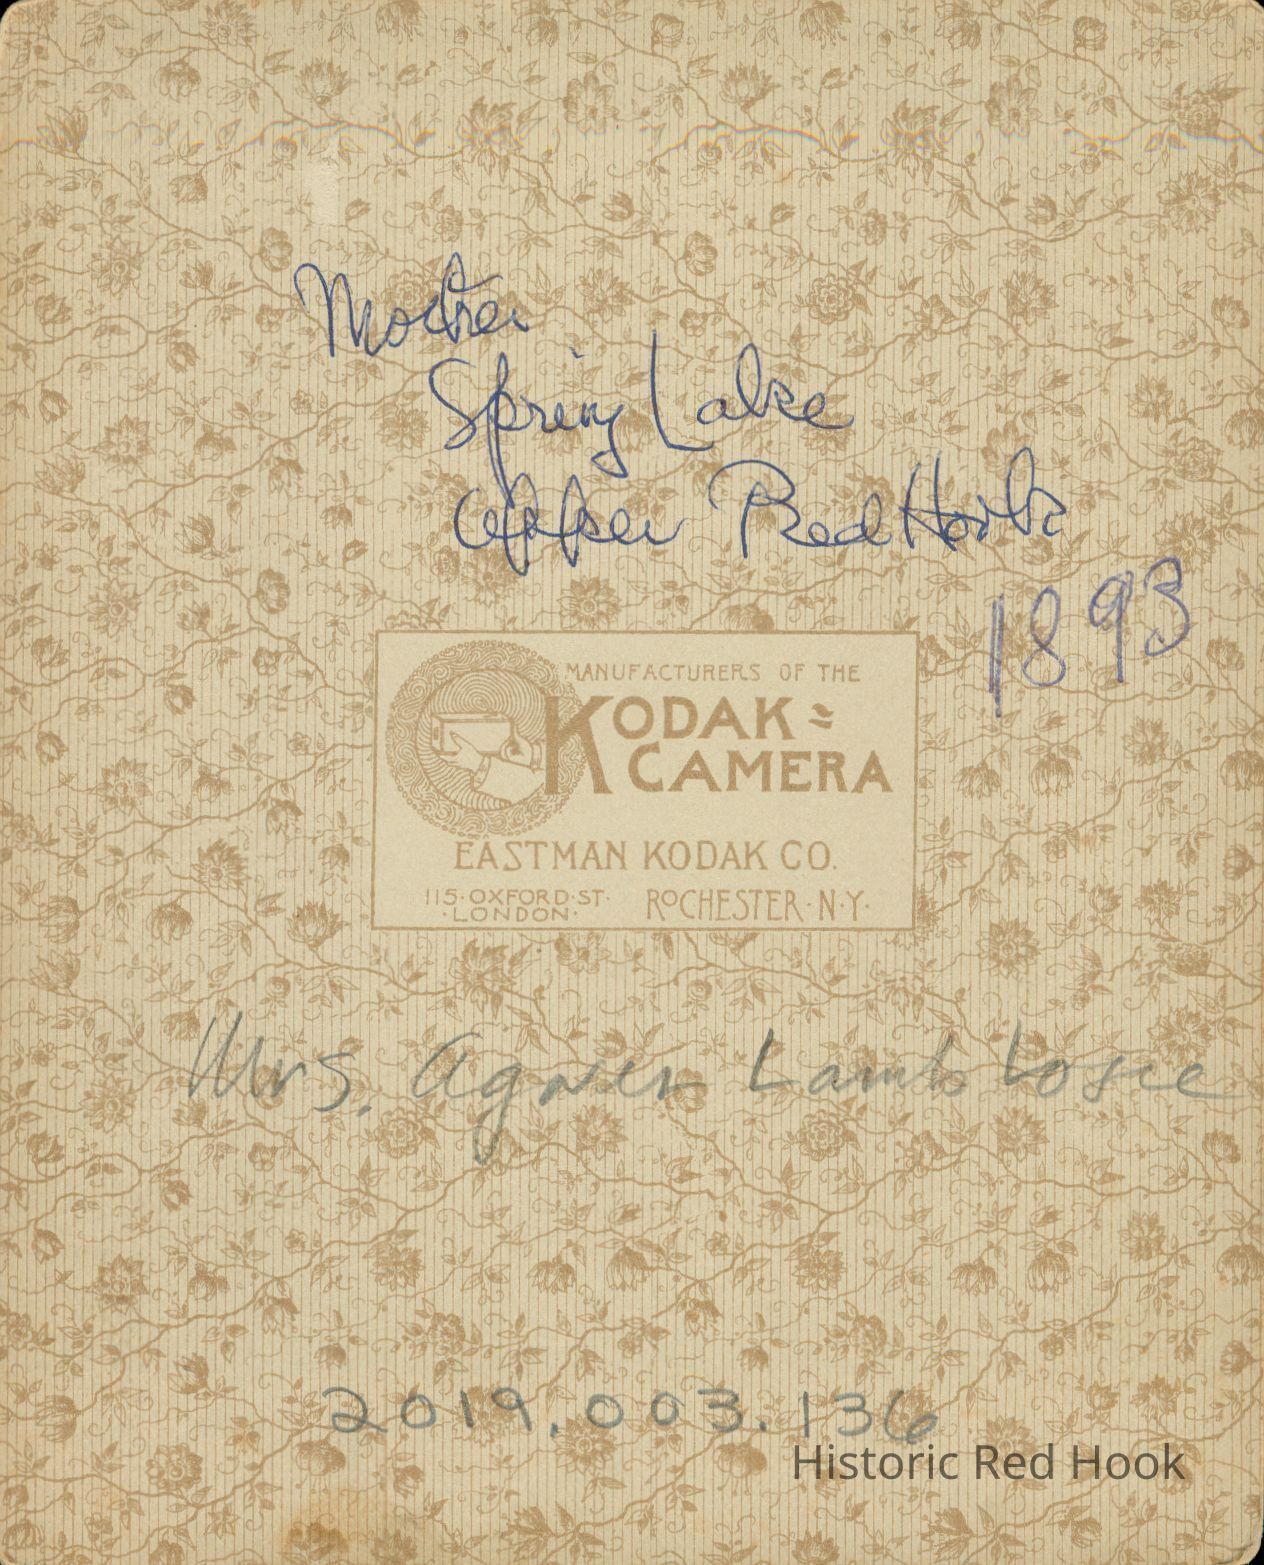 Mother
Spring Lake
Upper Red Hook
1893
MANUFACTURERS OF THE
KODAK
CAMERA
EASTMAN KODAK CO.
115·OXFORD·ST·
·LONDON·
ROCHESTER·N·Y·
Mrs. Agnes Lamb Losee
2019.003.136
Historic Red Hook